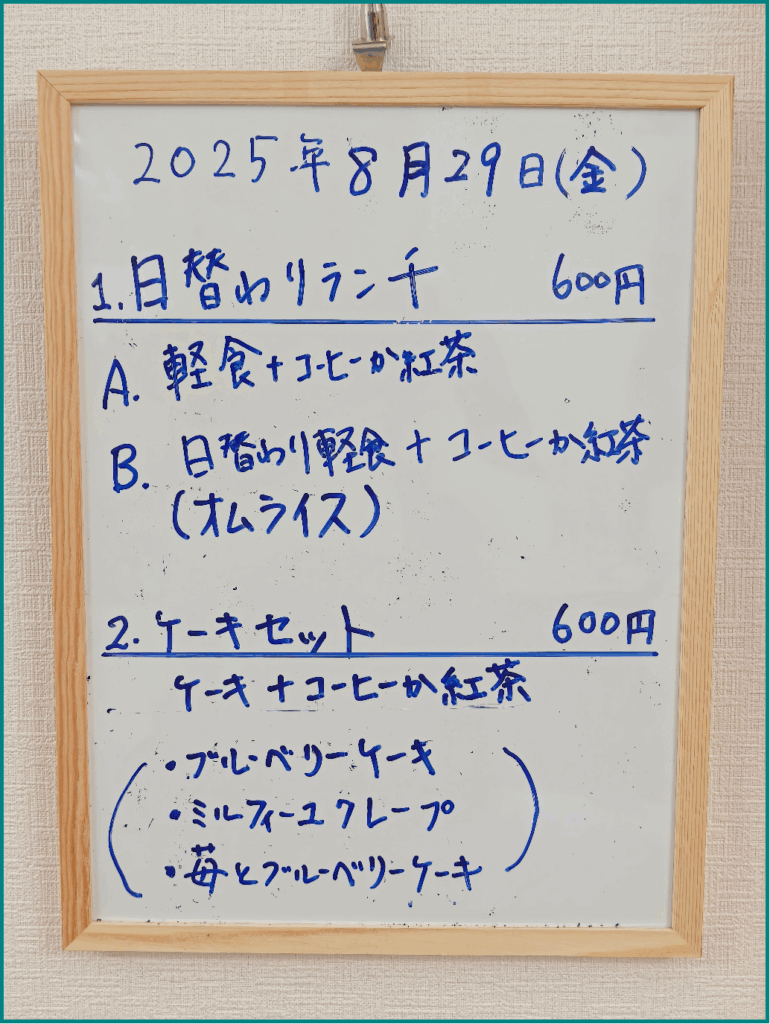 2025年8月29日(金)
1.日替わりランチ 600円
A. 軽食+コーヒーか紅茶
B. 日替わり軽食+コーヒーか紅茶
(オムライス)
2.ケーキセット 600円
ケーキ+コーヒーか紅茶
・ブルーベリーケーキ
・ミルフィーユクレープ
・苺とブルーベリーケーキ